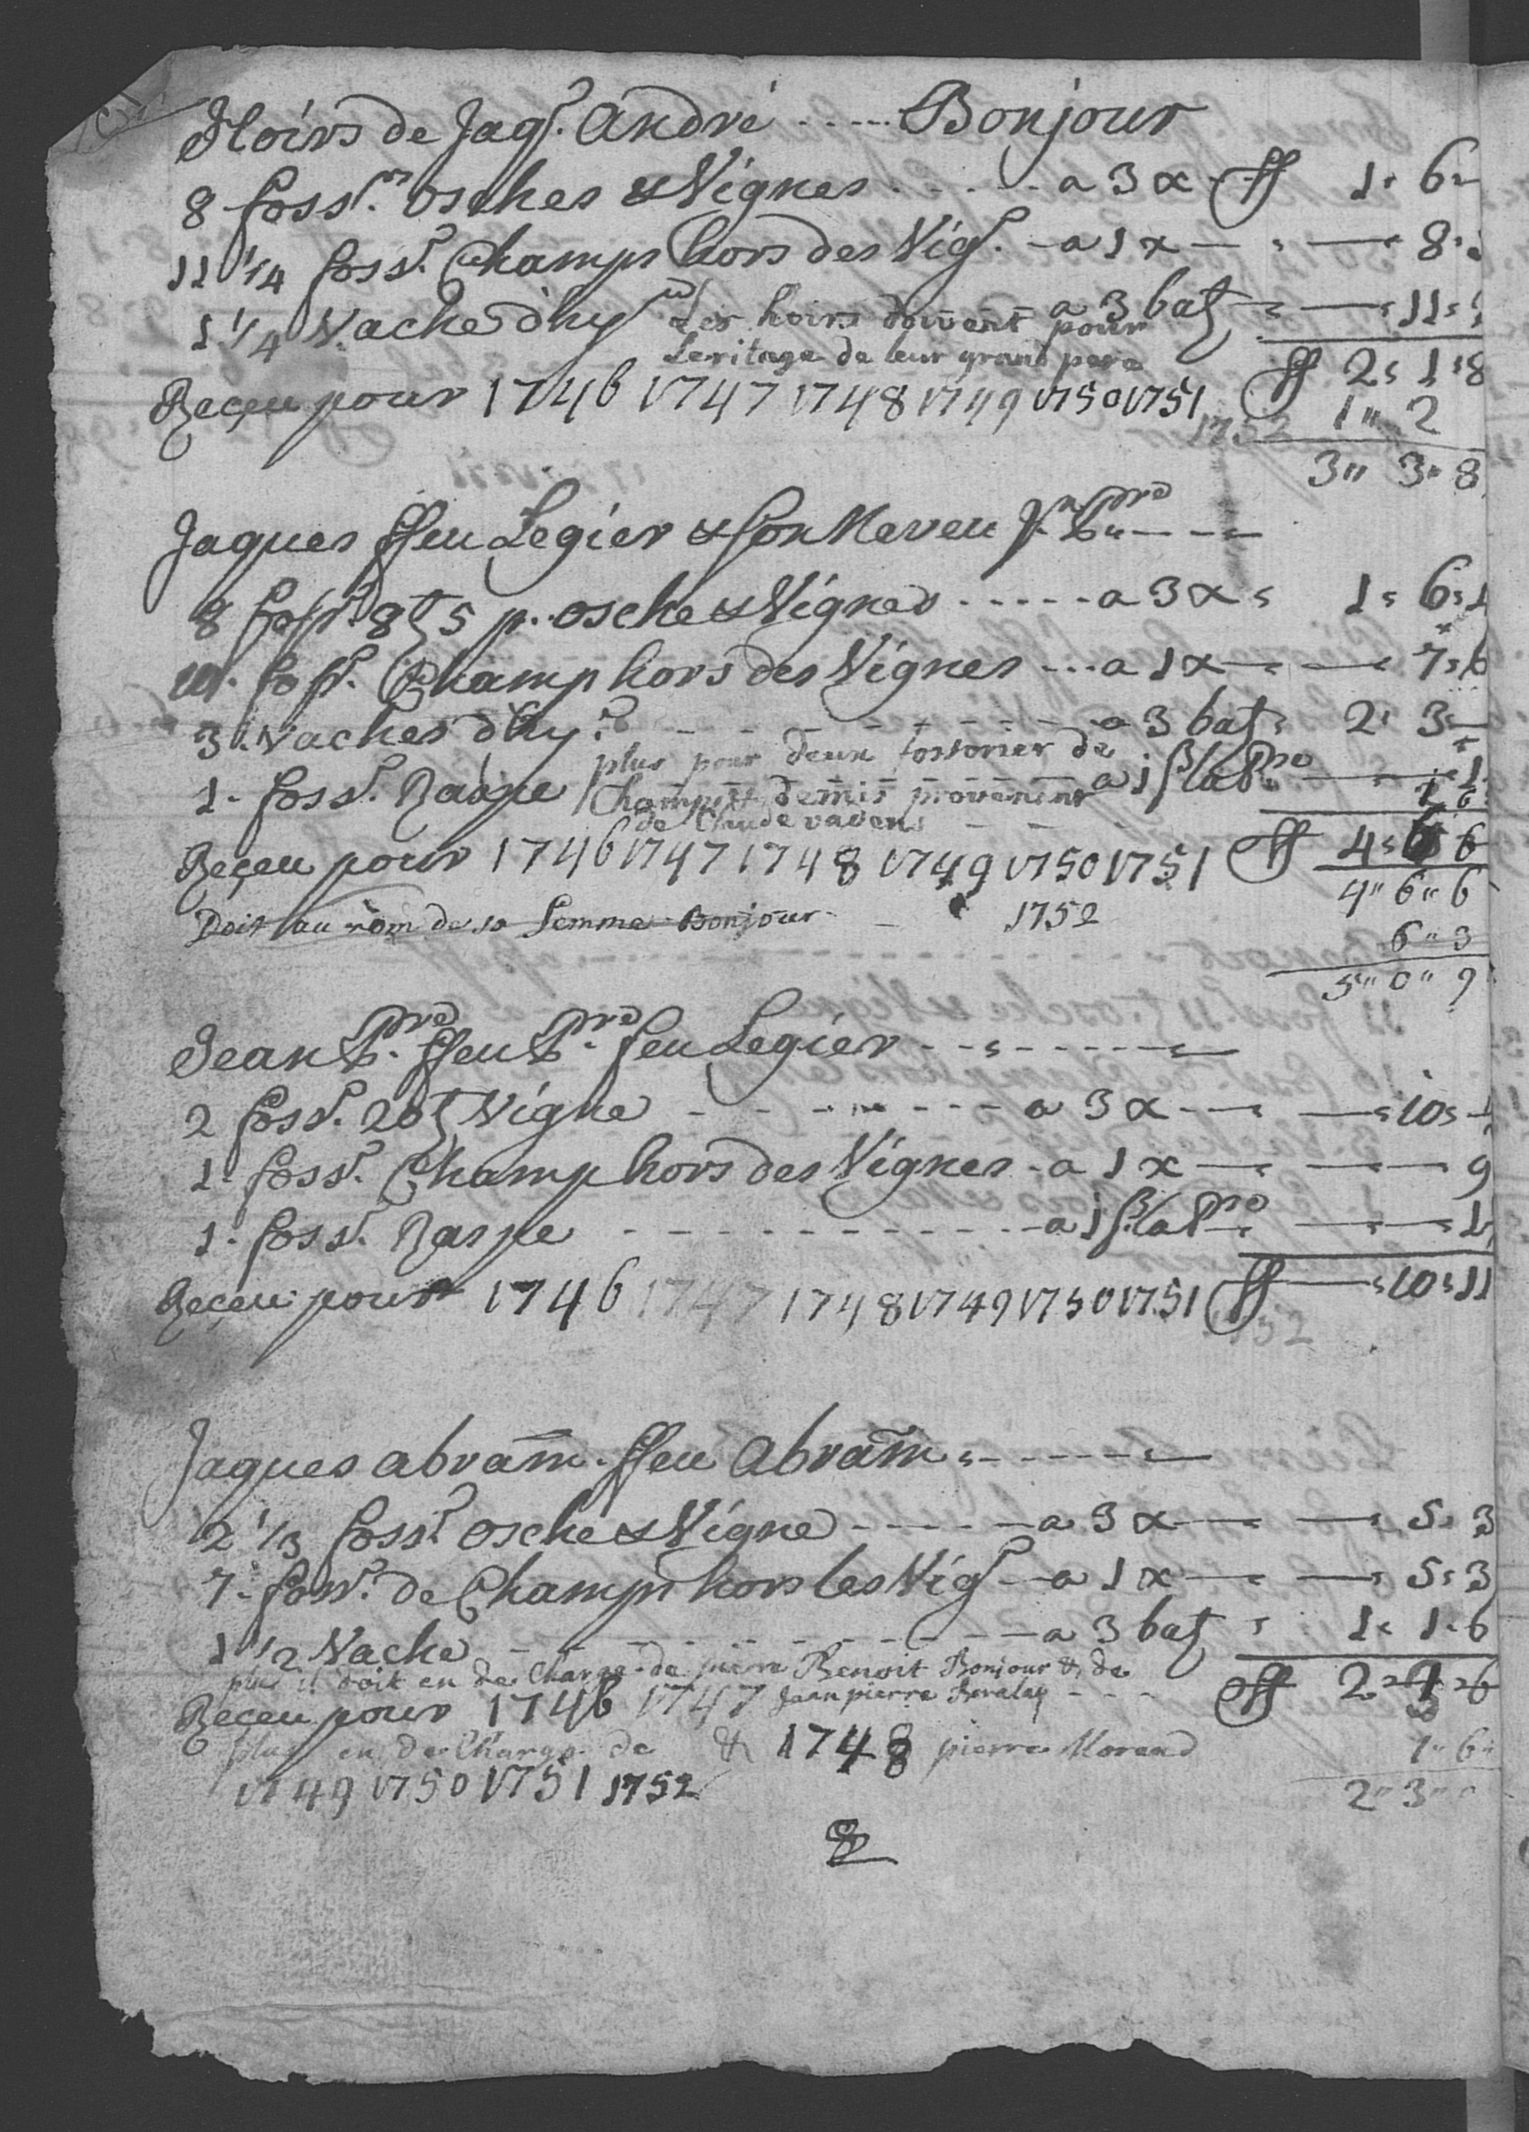 Hoirs de Jaq.s André ..... Bonjour
8 foss.rs osches & Vignes ..... a 3 x ff 1: 6:
11 1/4 foss.r Champs hors des Vig.s - a 1 x — : — 8:
1 1/4 Vache d'hy.r a 3 batz — : 11:
Les hoirs doivent pour
Leritage de leur grand pere
ff 2: 1: 8
Reçeu pour 1746 1747 1748 1749 1750 1751
1752
1" 2
3" 3" 8
Jaques ffeu Legier & son Neveu
8 foss.r 8 5 p. osche & Vignes ..... a 3 x : 1: 6: 1
10. foss.r Champ hors des Vignes ... a 1 x — : — 7: 6
3. Vaches d'hy.r - - - - - a 3 batz : 2: 3:
plus pour deux fossorier de
1. foss.r Raspe a 1 — 1
Champ & demis provenent
de Claude vaven
1 6
Reçeu pour 1746 1747 1748 1749 1750 1751 ff 4: 6 6
4" 6" 6
Doit au nom de sa femme Bonjour - 1752
6" 3
5" 0" 9
Jean P.re ffeu P.re feu Legier - - - - -
2 foss.r 20 Vigne - - - - - a 3 x — : — : 10:
1. foss.r Champ hors des Vignes - a 1 x — : — 9
1. foss.r Raspe - - - - - a 1 — : 1
Reçeu pour 1746 1747 1748 1749 1750 1751 ff — : 10: 11
1752
Jaques abram. ffeu Abram : - - - - -
2 1/3 foss.r osche & Vigne - - - - - a 3 x — : — : 5: 3
7. foss.r de Champs hors les Vig.s - a 1 x — : — : 5: 3
1 1/2 Vache - - - - - a 3 batz : 1: 1: 6
plus il doit en de Charge de pierre Benoit Bonjour & de
ff 2 6
Reçeu pour 1746 1747 Jean pierre
plus en de Charge de & 1748 pierre Morand 1" 6"
1749 1750 1751 1752
2" 3" 0